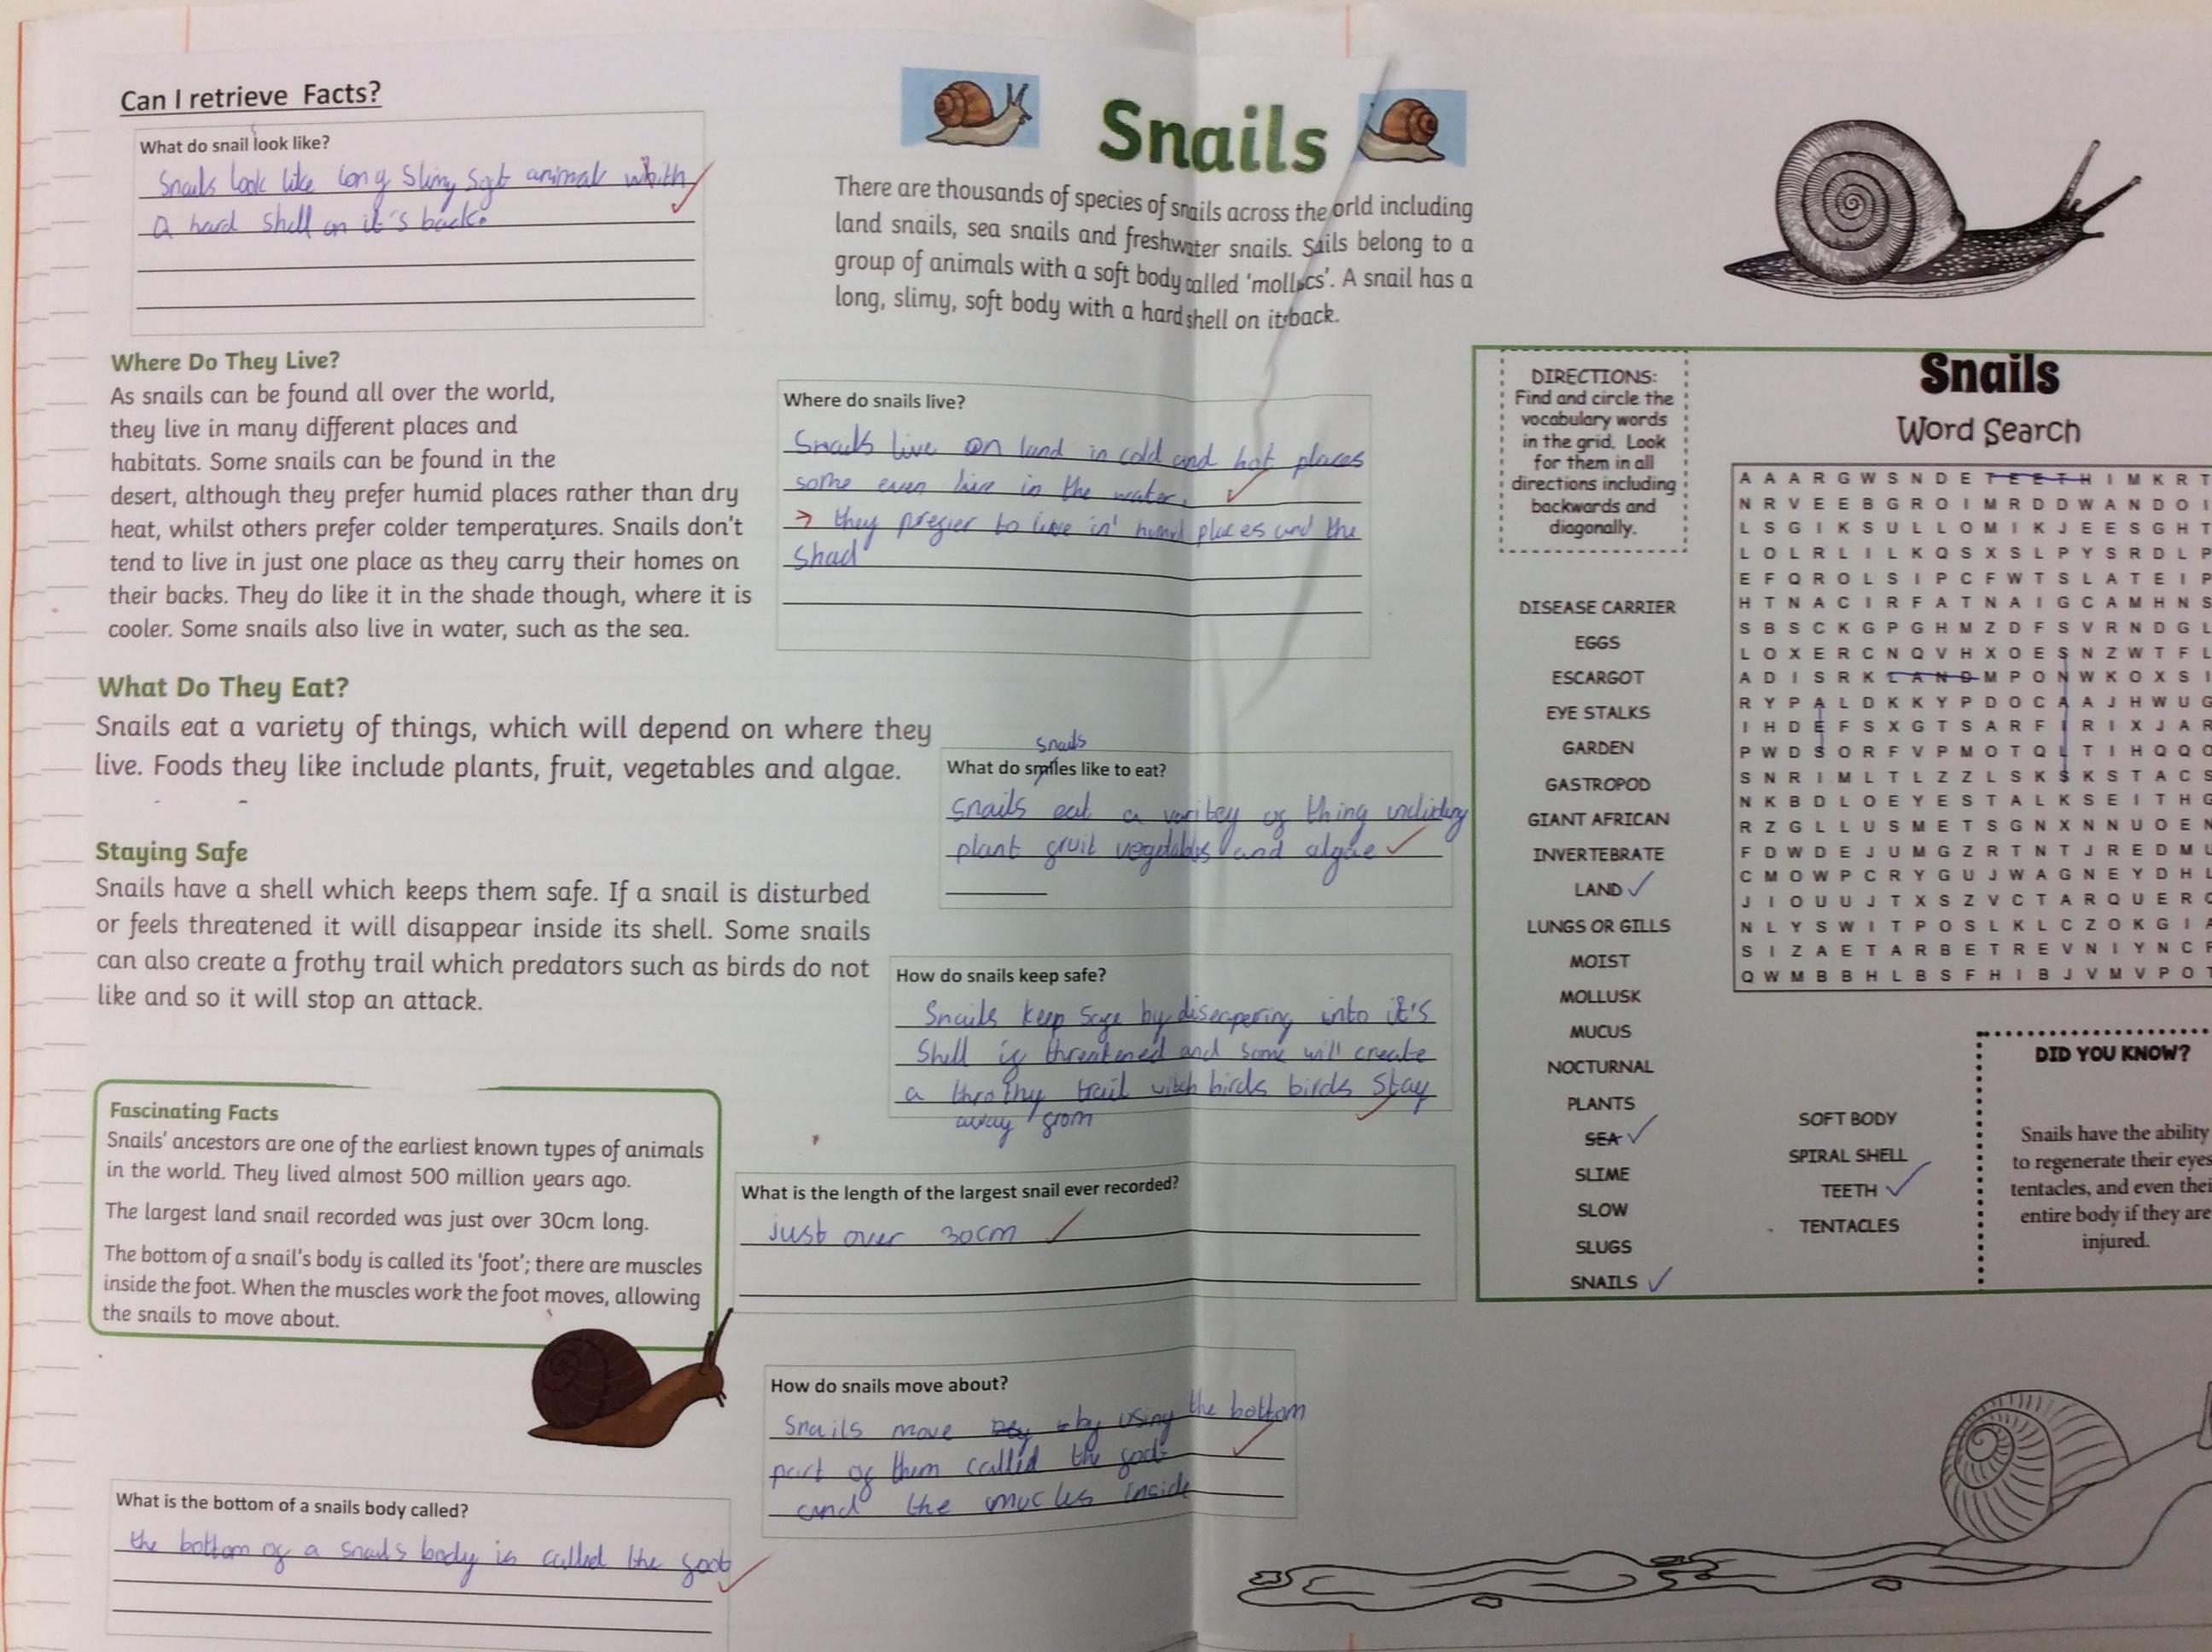 Can I retrieve Facts?
What do snail look like?
s
Snails look like long slimy soft animal whith
a hard shell on it's back.
Snails
There are thousands of species of snails across the orld including
land snails, sea snails and freshwater snails. Sails belong to a
group of animals with a soft body called 'mollscs'. A snail has a
long, slimy, soft body with a hard shell on it back.
Where Do They Live?
As snails can be found all over the world,
they live in many different places and
habitats. Some snails can be found in the
desert, although they prefer humid places rather than dry
heat, whilst others prefer colder temperatures. Snails don't
tend to live in just one place as they carry their homes on
their backs. They do like it in the shade though, where it is
cooler. Some snails also live in water, such as the sea.
Where do snails live?
Snails live on land in cold and hot places
some even live in the water.
→ they prefier to live in humid places and the
shad
What Do They Eat?
Snails eat a variety of things, which will depend on where they
live. Foods they like include plants, fruit, vegetables and algae.
snails
What do smiles like to eat?
snails eat a varitey of thing including
plant fruit vegetables and algae
Staying Safe
Snails have a shell which keeps them safe. If a snail is disturbed
or feels threatened it will disappear inside its shell. Some snails
can also create a frothy trail which predators such as birds do not
like and so it will stop an attack.
How do snails keep safe?
Snails keep safe by diseapering into it's
shell if threatened and some will create
a throthy trail witch birds birds stay
away from
Fascinating Facts
Snails' ancestors are one of the earliest known types of animals
in the world. They lived almost 500 million years ago.
The largest land snail recorded was just over 30cm long.
The bottom of a snail's body is called its 'foot'; there are muscles
inside the foot. When the muscles work the foot moves, allowing
the snails to move about.
What is the length of the largest snail ever recorded?
just over 30cm
How do snails move about?
snails move by using the bottom
part of them called the foot
and the mucles inside
What is the bottom of a snails body called?
the bottom of a snails body is called the foot
DIRECTIONS:
Find and circle the
vocabulary words
in the grid. Look
for them in all
directions including
backwards and
diagonally.
Snails
Word Search
A A A R G W S N D E T E E T H I M K R T
N R V E E B G R O I M R D D W A N D O I
L S G I K S U L L O M I K J E E S G H T
L O L R L I L K Q S X S L P Y S R D L P
E F Q R O L S I P C F W T S L A T E I P
H T N A C I R F A T N A I G C A M H N S
S B S C K G P G H M Z D F S V R N D G L
L O X E R C N Q V H X O E S N Z W T F L
A D I S R K L A N D M P O N W K O X S I
R Y P A L D K K Y P D O C A A J H W U G
I H D E F S X G T S A R F I R I X J A R
P W D S O R F V P M O T Q L T I H Q Q O
S N R I M L T L Z Z L S K S K S T A C S
N K B D L O E Y E S T A L K S E I T H G
R Z G L L U S M E T S G N X N N U O E N
F D W D E J U M G Z R T N T J R E D M U
C M O W P C R Y G U J W A G N E Y D H L
J I O U U J T X S Z V C T A R Q U E R O
N L Y S W I T P O S L K L C Z O K G I A
S I Z A E T A R B E T R E V N I Y N C F
Q W M B B H L B S F H I B J V M V P O T
DISEASE CARRIER
EGGS
ESCARGOT
EYE STALKS
GARDEN
GASTROPOD
GIANT AFRICAN
INVERTEBRATE
LAND
LUNGS OR GILLS
MOIST
MOLLUSK
MUCUS
NOCTURNAL
PLANTS
SEA
SLIME
SLOW
SLUGS
SNAILS
SOFT BODY
SPIRAL SHELL
TEETH
TENTACLES
DID YOU KNOW?
Snails have the ability
to regenerate their eyes
tentacles, and even thei
entire body if they are
injured.